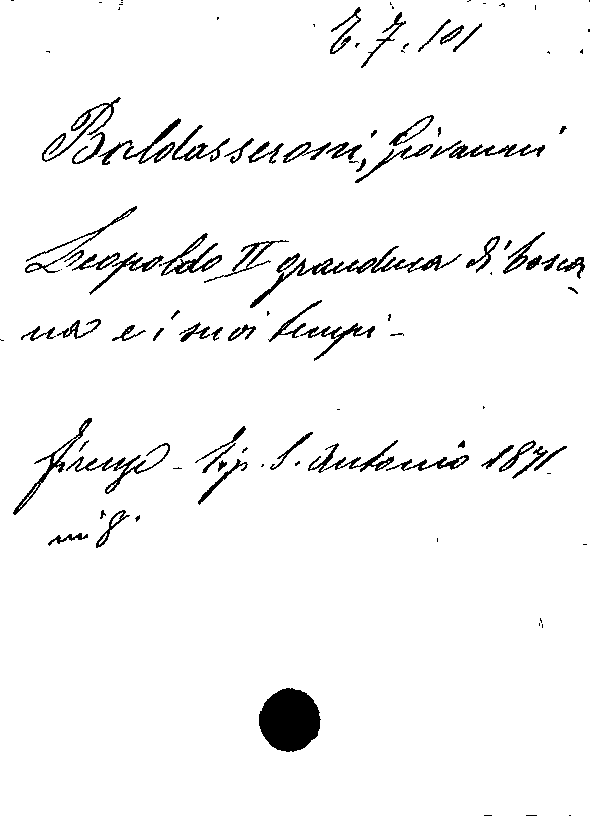 E.7.101
Baldasseroni, Giovanni
Leopoldo II granduca di Tosca
na e i suoi tempi -
Firenze - Tip. S. Antonio 1871
in 8.